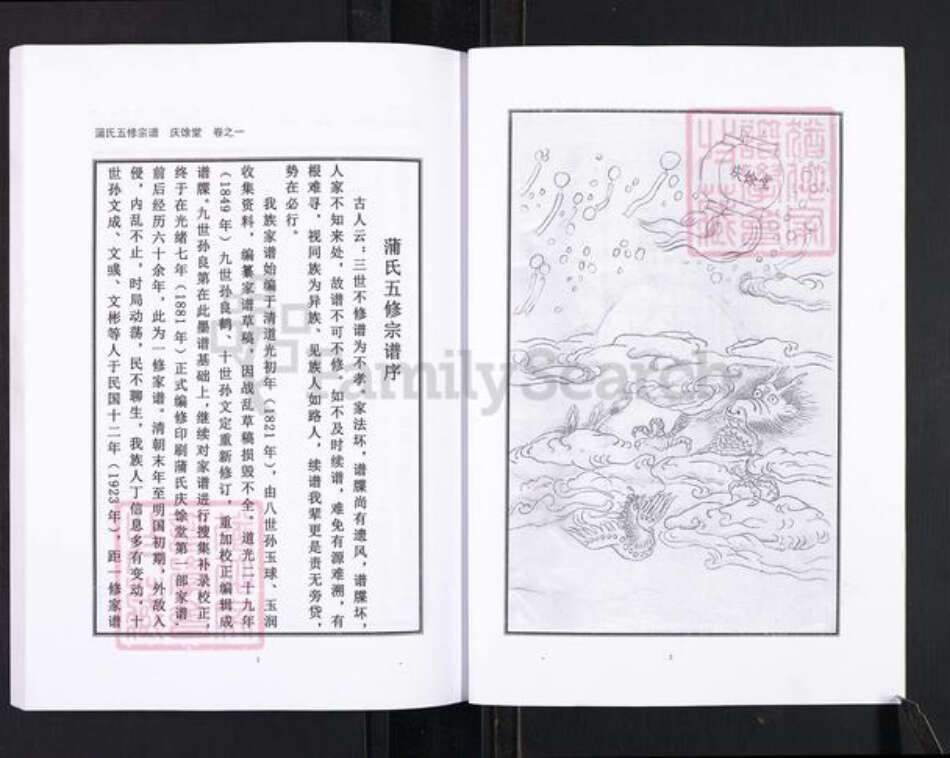 蒲氏五修宗谱 庆馀堂 卷之一
蒲氏五修宗谱序
古人云：三世不修谱为不孝。家法坏，谱牒尚有遗风，谱牒坏，
人家不知来处，故谱不可不修。如不及时续谱，难免有源难溯，有
根难寻，视同族为异族、见族人如路人，续谱我辈更是责无旁贷，
势在必行。
我族家谱始编于清道光初年（1821年），由八世孙玉球、玉润
收集资料，编纂家谱草稿，因战乱草稿损毁不全。道光二十九年
（1849年）九世孙良鹤、十世孙文定重新修订，重加校正编辑成
谱牒。九世孙良第在此墨谱基础上，继续对家谱进行搜集补录校正，
终于在光绪七年（1881年）正式编修印刷蒲氏庆馀堂第一部家谱。
前后经历六十余年，此为一修家谱。清朝末年至明国初期，外敌入
侵，内乱不止，时局动荡，民不聊生，我族人丁信息多有变动，十
世孙文成、文彧、文彬等人于民国十二年（1923年），距一修家谱
1
庆馀堂
2
FamilySearch